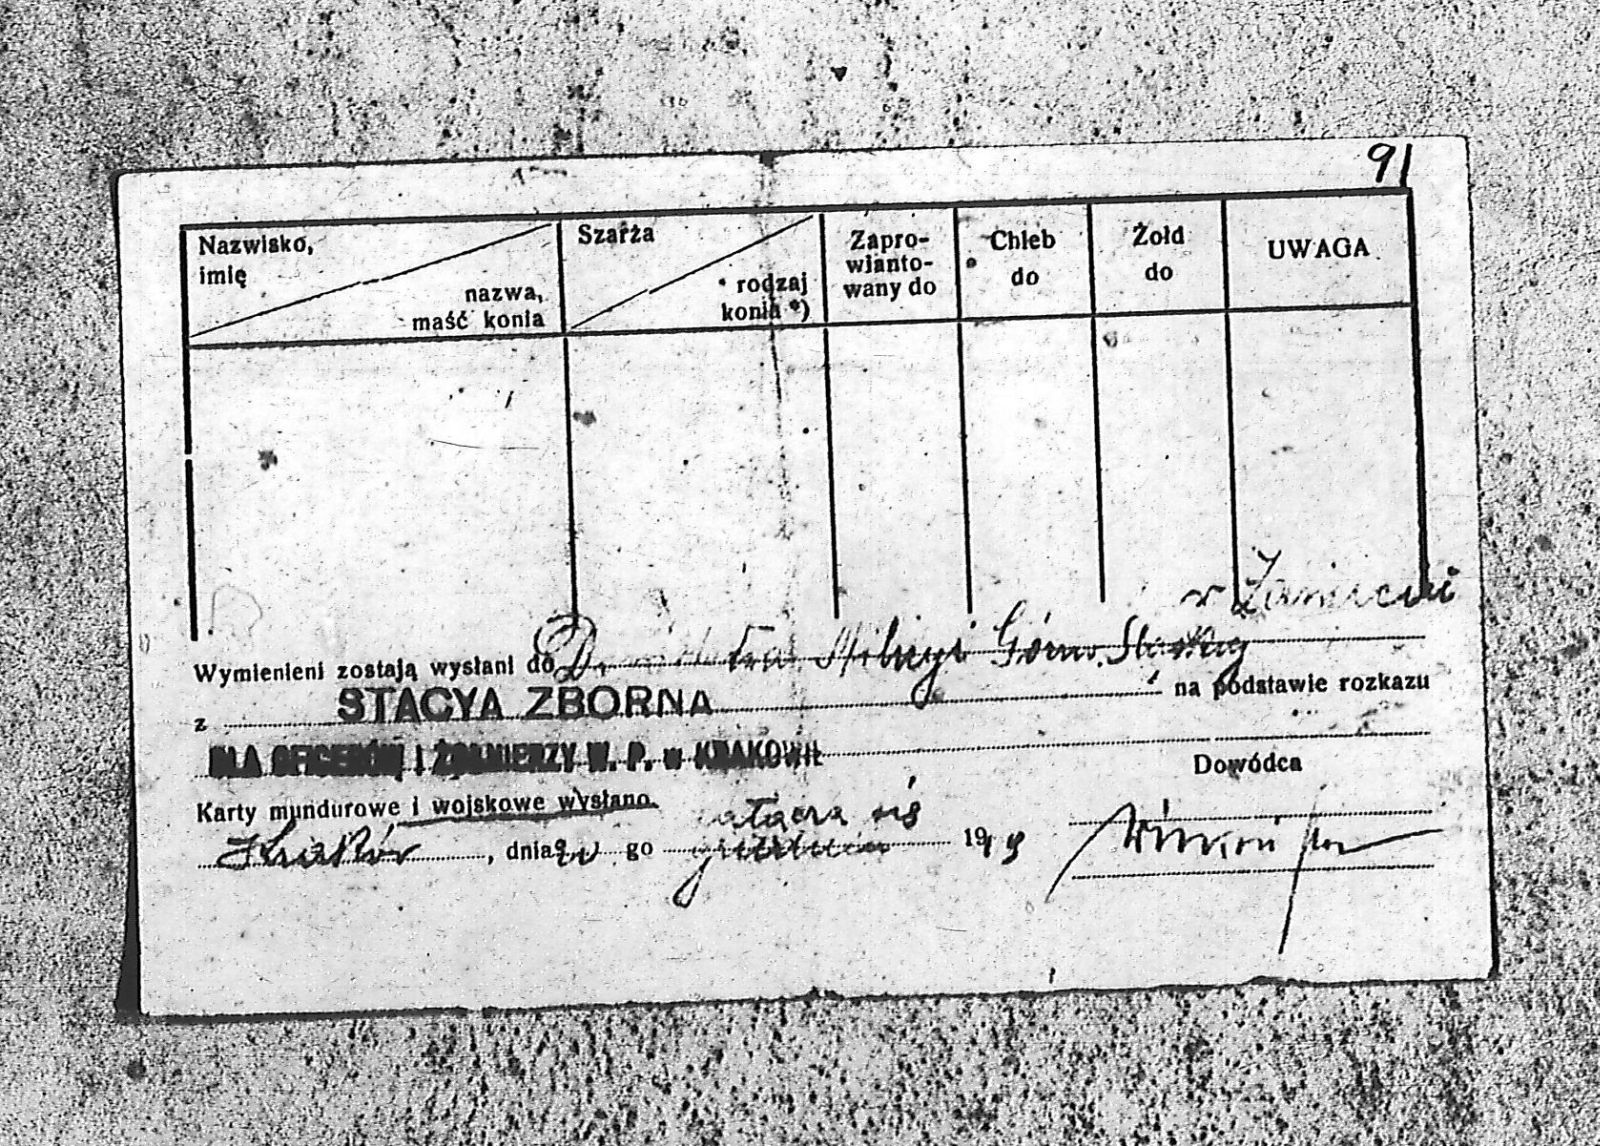 91
Nazwisko,
imię
nazwa,
maść konia
Szarża
rodzaj
konia *)
Zapro-
wianto-
wany do
Chleb
do
Żołd
do
UWAGA
w
Wymienieni zostają wysłani do Milicyi Górno. Śląskiej
z STACYA ZBORNA na podstawie rozkazu
DLA OFICERÓW I ŻOŁNIERZY W. P. w KRAKOWIE
Dowódca
Karty mundurowe i wojskowe wysłano.
załącza się
Kraków, dnia 20 go grudnia 1919